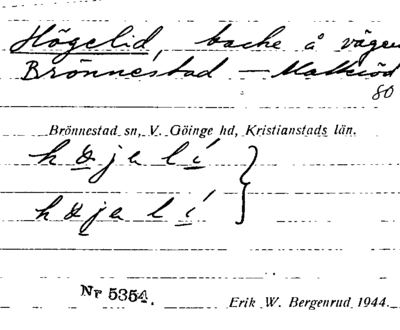 Högelid, backe å vägen
Brönnestad — Matteröd
80
Brönnestad sn, V. Göinge hd, Kristianstads län.
Nr 5354.
Erik W. Bergenrud 1944.